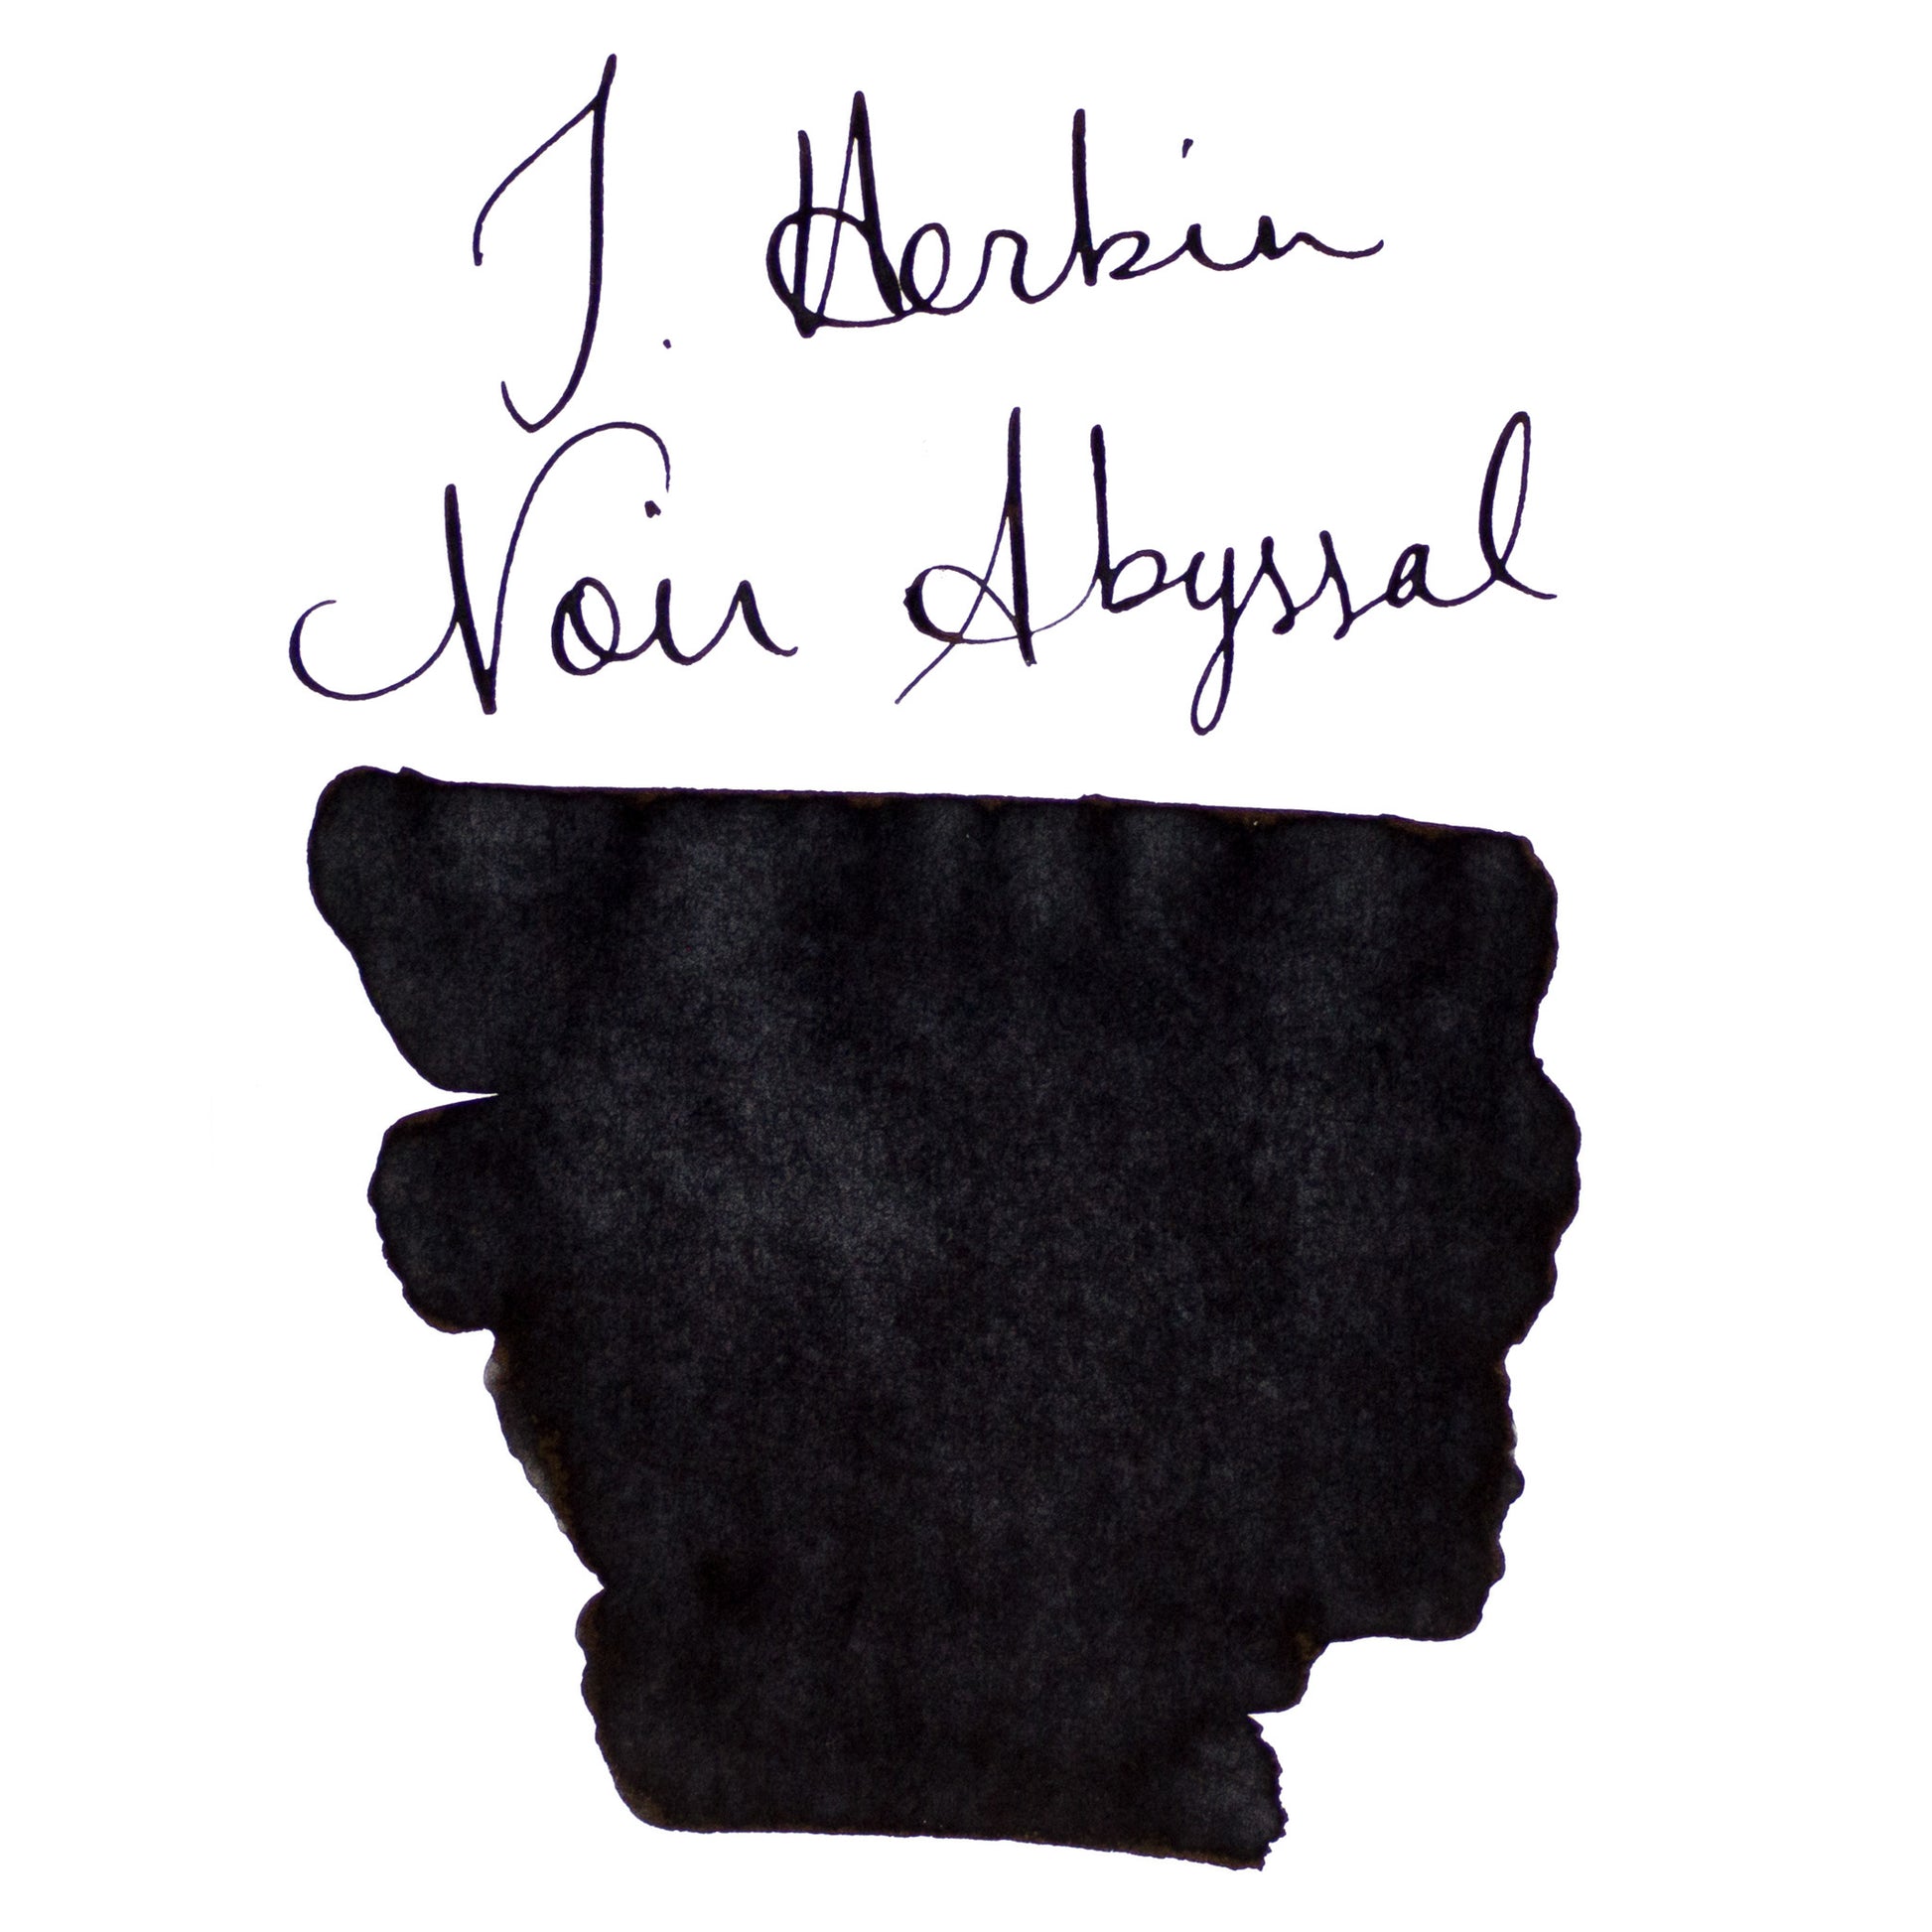 J. Herbin
Noir Abyssal